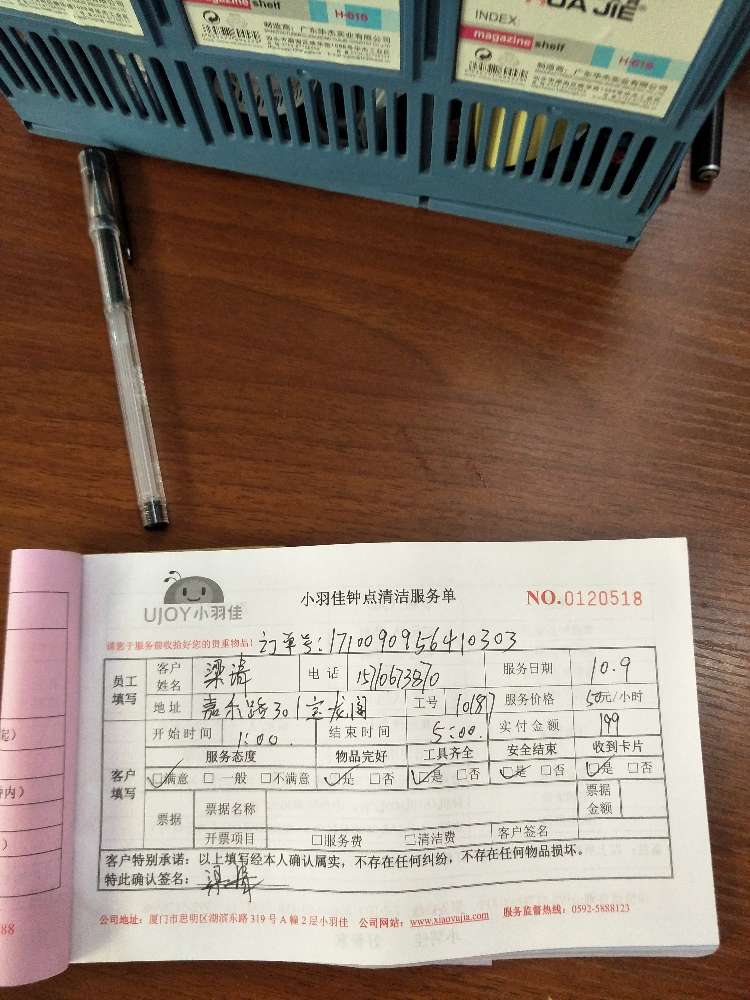 magazine shelf
H-616
制造商：广东华杰实业有限公司
INDEX:
HUA JIE
magazine shelf
H-616
制造商：广东华杰实业有限公司
UJOY小羽佳
小羽佳钟点清洁服务单
NO.0120518
请您于服务前收拾好您的贵重物品!
订单号:1710090956410303
员工填写
客户姓名 梁清 电话 15710673870 服务日期 10.9
地址 嘉禾路301宝龙阁 工号 10187 服务价格 50元/小时
开始时间 1:00. 结束时间 5:00. 实付金额 199
客户填写
服务态度 物品完好 工具齐全 安全结束 收到卡片
☑满意 □一般 □不满意 ☑是 □否 ☑是 □否 ☑是 □否 ☑是 □否
票据 票据名称 票据金额
开票项目 □服务费 □清洁费 客户签名
客户特别承诺：以上填写经本人确认属实，不存在任何纠纷，不存在任何物品损坏。
特此确认签名：
公司地址：厦门市思明区湖滨东路319号A幢2层小羽佳 公司网站：www.xiaoyujia.com 服务监督热线：0592-5888123